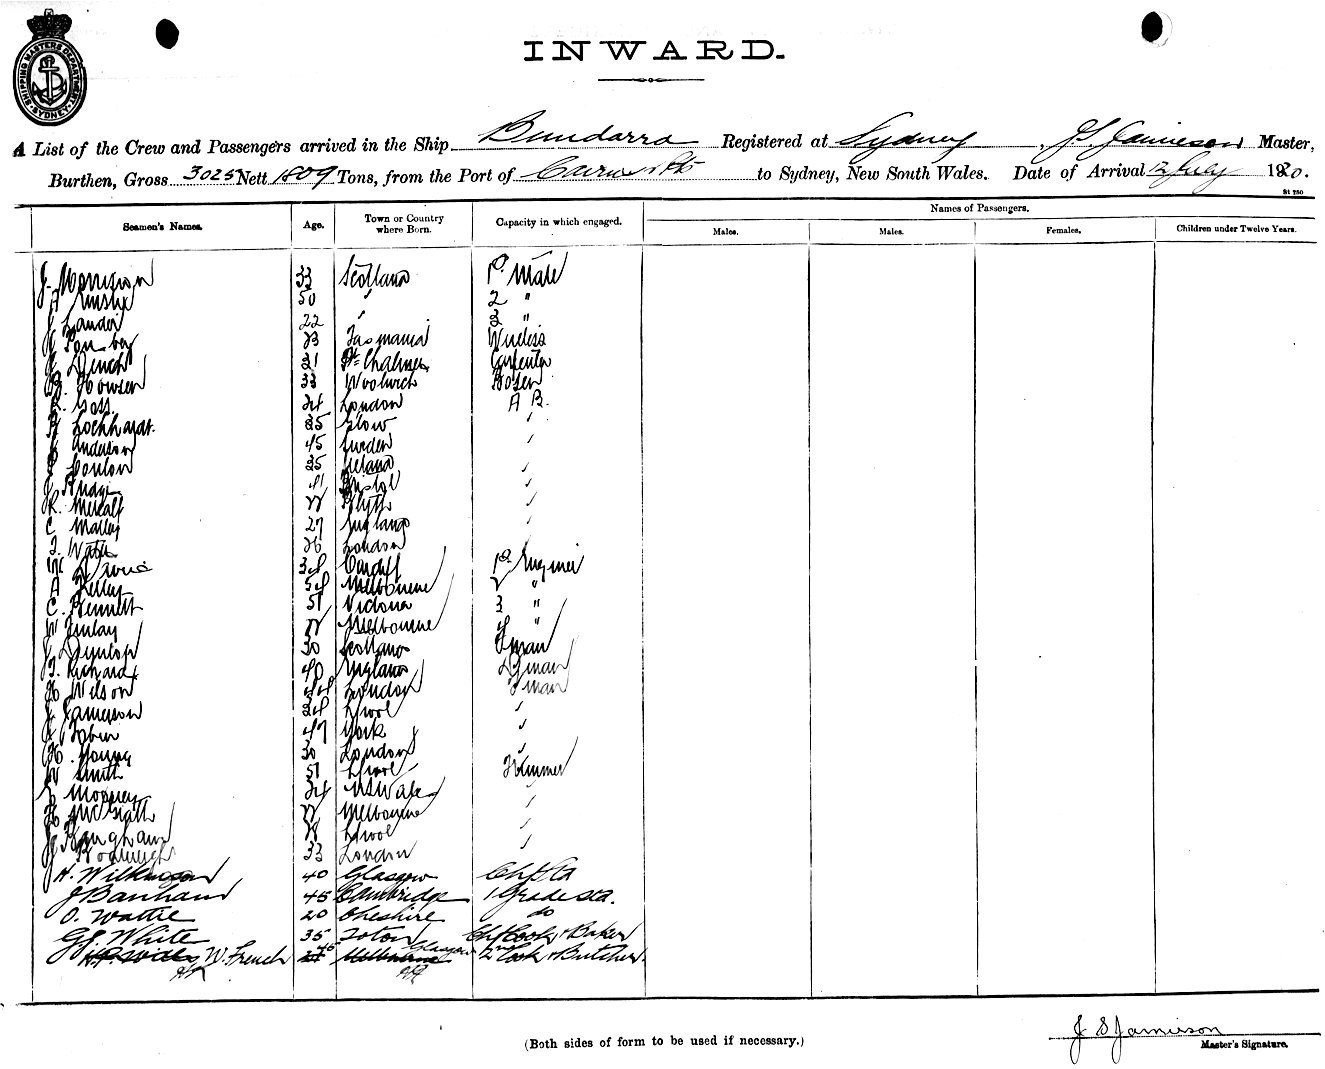 SHIPPING MASTERS DEPARTMENT SYDNEY
INWARD.
A List of the Crew and Passengers arrived in the Ship Bundarra Registered at Sydney, J. S. Jamieson Master,
Burthen, Gross 3025 Nett 1809 Tons, from the Port of to Sydney, New South Wales. Date of Arrival 12 July 1920.
Names of Passengers.
Seamen's Names. Age. Town or Country where Born. Capacity in which engaged. Males. Males. Females. Children under Twelve Years.
J. Morrison 33 Scotland 1st Mate
A 50 " 2 "
J Lauder 22 " 3 "
23 Tasmania Wireless
J 31 Pt. Chalmers Carpenter
B. Howsen 33 Woolwich Bosen
R. Goss. 24 London A B.
Lockhardt. 25 "
Anderson 45 Sweden "
Conlon 25 Ireland "
J 41 Bristol "
R. Metcalf Blyth "
C 27 England "
J. Watts 26 London "
W 38 Cardiff 1st Engineer
A Kelley 54 Melbourne 2 "
C. Bennett 51 Victoria 3 "
W Finlay Melbourne 4 "
J Dunlop 30 Scotland Fman
J. Richards 40 England Dman
H Wilson 44 London Fman
J Jamerson 24 L'pool "
J Tobin 47 York "
H. Young 30 London "
W Smith 51 L'pool Trimmer
34 N S Wales "
H McGrath Melbourne "
J Bangham L'pool "
J 33 London "
H. Wilkinson 40 Glasgow Chf Sta
J Banham 45 Cambridge 1 Grade sta.
O. Wattie 20 Cheshire do
G J. White 35 Chf Cook & Baker
W. French 46 Glasgow 2nd Cook & Butcher
J S Jamieson
(Both sides of form to be used if necessary.) Master's Signature.